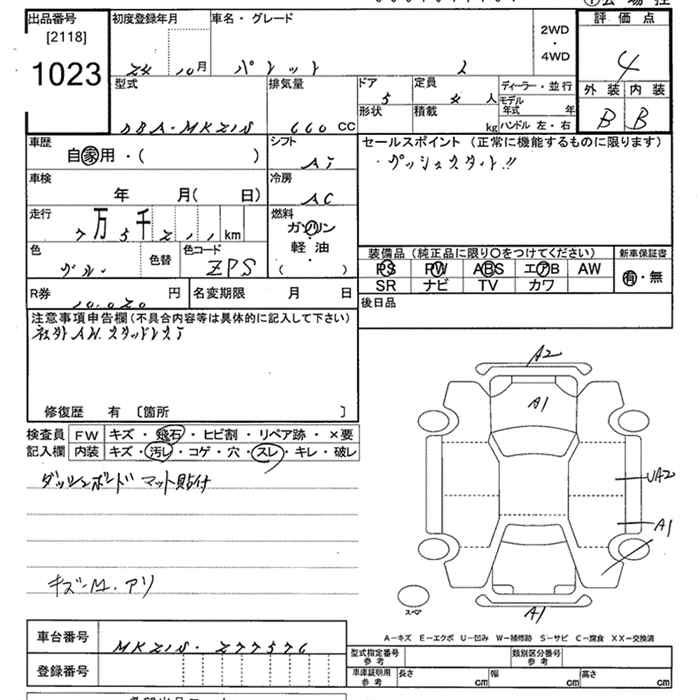 出品番号
[2118]
1023
初度登録年月
車名・グレード
24 10月
パレット L
2WD
・
4WD
評価点
4
外装 内装
B B
型式
DBA-MK21S
排気量
660 CC
ドア
5
定員
4 人
形状
積載
kg
ディーラー・並行
モデル年式 年
ハンドル 左・右
車歴
自家用・( )
シフト
AT
車検
年 月( 日)
冷房
AC
走行
7万5千211km
燃料
ガソリン
軽・油
( ・ )
色
色替
色コード
ZPS
セールスポイント(正常に機能するものに限ります)
・プッシュスタート!!
装備品(純正品に限り〇をつけてください)
PS PW ABS エアB AW
SR ナビ TV カワ
新車保証書
有・無
R券
10.020 円
名変期限 月 日
後日品
注意事項申告欄(不具合内容等は具体的に記入して下さい)
社外AW.
修復歴 有 〔箇所 〕
検査員
記入欄
FW キズ・飛石・ヒビ割・リペア跡・×要
内装 キズ・汚レ・コゲ・穴・スレ・キレ・破レ
ダッシュボード マット貼付
キズ
アリ
A2
A1
UA2
A1
A1
スペア
A-キズ E-エクボ U-凹み W-補修跡 S-サビ C-腐食 XX-交換済
車台番号
MK21S-277576
登録番号
型式指定番号
参考
類別区分番号
参考
車庫証明用
参考
長さ cm
幅 cm
高さ cm